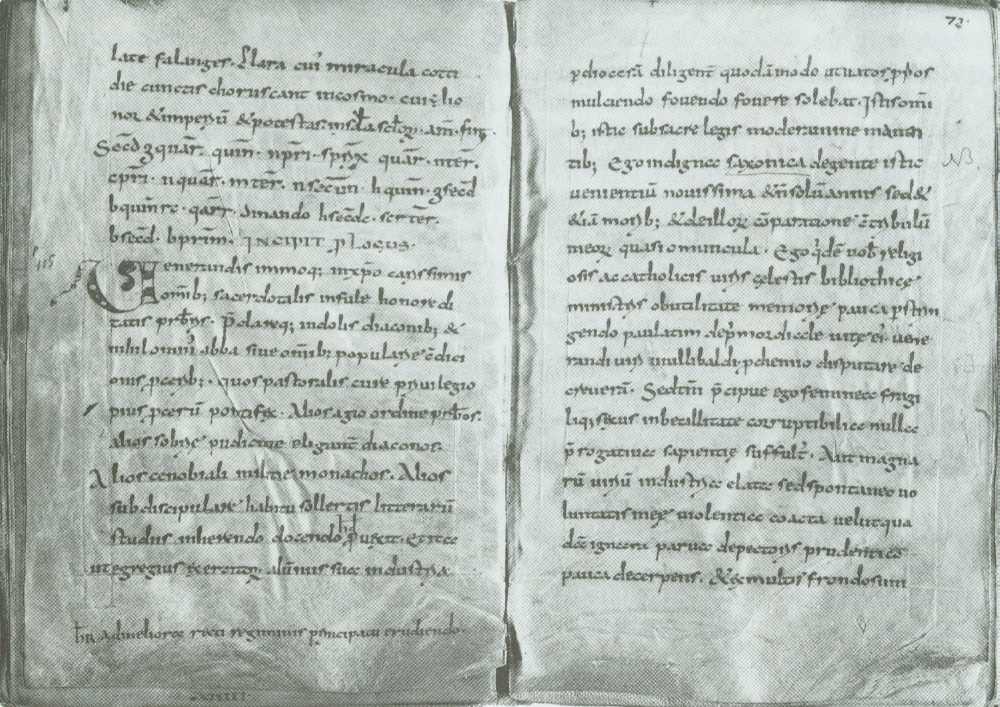 late falanges. Clara cui' miracula coti
die cunctis choruscant in cosmo. cui: ho
nor & imperiū & potestas in scła scłoꝝ. am̄. fin̄.
Secd̄ gquar̄. quin̄. npri. sprix quar̄. nter̄.
cpri. nquar̄. mter̄. nsecun. hquin̄. gsecd̄
bquinrc. qarr. dinando hsecdc. scrter̄.
bsecd̄. bprim̄. INCIPIT PLOGUS.
Uenerandis immoq; in xp̄o carissimis
om̄ib; sacerdotalis infule honore di
tatis prb̄ris. p̄clareq; indolis diaconib; &
nihilominꝰ abba siue om̄ib; popularie c̄dici
onis pcerib;. quos pastoralis cure priuilegio
pius pcerū pontifex. Alios agio ordine prb̄os.
alios sobrie pudicitie eligunt diaconos.
Alios cenobiali militie monachos. Alios
sub discipulare habitu sollertis litterarū
studiis inherendo docendo hd puexit. Et itee
ut egregius exerceter alūnus suę industria
hr̄ Ad meliorce recti regiminis principatu erudiendo.
72.
p diocesā diligent̄ quodāmodo ut uatos pprios
mulcendo fouendo fouere solebat. Istis om̄i
b; istic sub sacre legis moderamine manen
tib; Ego indignee saxonica de gente istic
NB.
uenientiū nouissima & n̄ solū annis sed &
&iā morib; & de illoꝝ c̄paratione c̄tribuliū
meoꝝ quasi omuncula. Ego qđē uob̄ religi
osis ac catholicis uiris cęlestis bibliothicę
ministris ob utilitate memorie pauca p̄strin
gendo paulatim de primordiale uite eiꝰ uene
randi uiri uullibaldi; phemio disputare de
creueram. Sed tm̄ p̄cipue ego feminee fragi
li q; sexus inbecillitate corruptibilice nullce
p̄rogatiuce sapientię suffulta. Aut magna
rū uiriū industrice elatce sed spontaneo uo
luntatis mee uiolentice coacta uelut qua
dā ignara paruce de pectoris prudentices
pauca decerpens. & ex multis frondosum